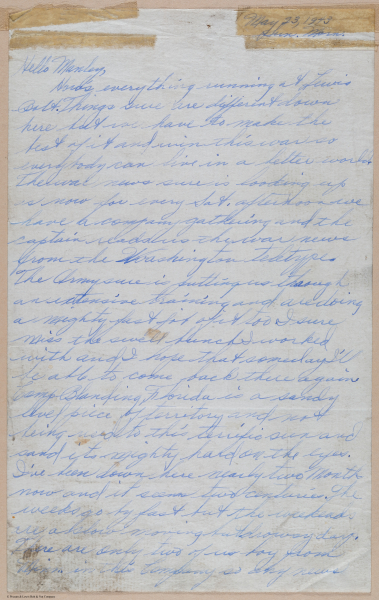 May 23, 1943
Sun. Morn.
Hello Manley,
How's everything running at Lewis
Salt. Things sure are different down
here but we have to make the
best of it and win this war so
everybody can live in a better world.
The war news sure is looking up
is now for every Sat. afternoon we
have a company gathering and the
captain reads us the war news
from the Washington teletype.
The Army sure is putting us through
an extensive training and we're doing
a mighty fast job of it too. I sure
miss the swell bunch I worked
with and I hope that someday I'll
be able to come back there again
Camp Blanding Florida is a sandy
level piece of territory and not
being used to this terrific sun and
sand is mighty hard on the eyes.
I've been down here nearly two months
now and it seems two centuries. The
weeks go by fast but the weekend
are slow moving
There are only two of us boys from
in this Company so any news